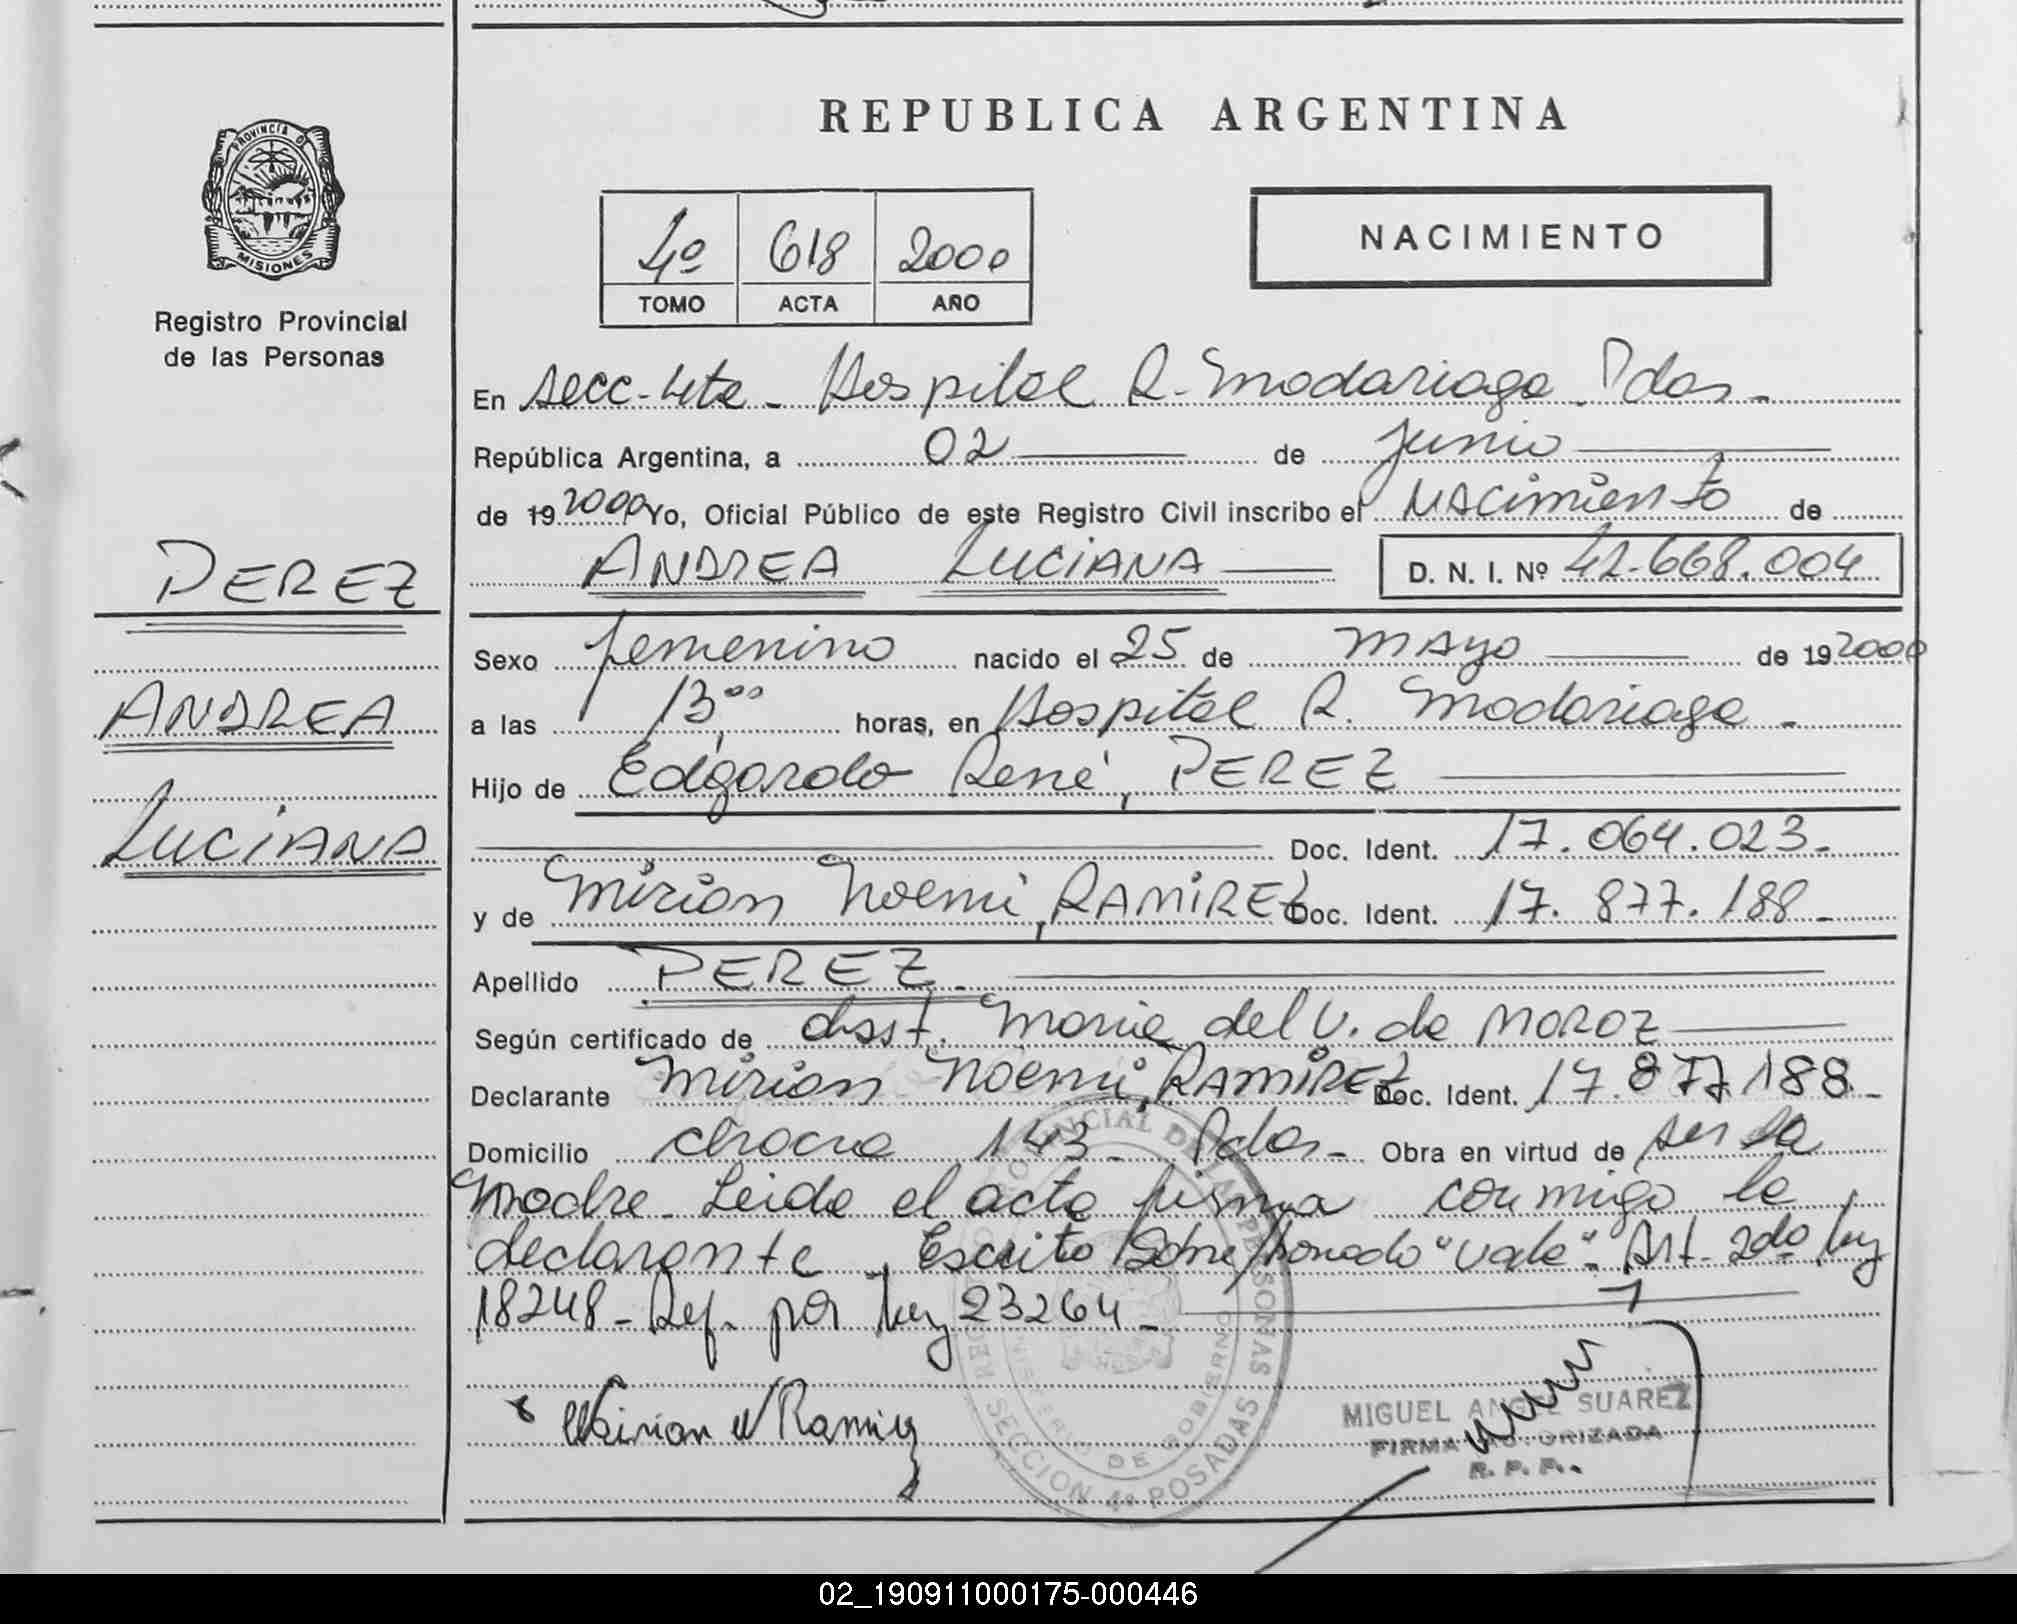 REPUBLICA ARGENTINA
PROVINCIA DE
MISIONES
Registro Provincial
de las Personas
4º 618 2000
TOMO ACTA AÑO
NACIMIENTO
En secc-4ta - Hospital R. Madariaga. Pdas.-
República Argentina, a 02 de junio
de 19 2000 Yo, Oficial Público de este Registro Civil inscribo el NACimiento de
ANDREA LUCiANA D. N. I. Nº 42.668.004
PEREZ
ANDREA
LUCiANA
Sexo femenino nacido el 25 de mAyo de 19 2000
a las 13,00 horas, en Hospital R. Madariaga -
Hijo de Edgardo René, PEREZ
Doc. Ident. 17.064.023.-
y de Mirian Noemi, RAMiREZ Doc. Ident. 17.877.188 -
Apellido PEREZ.-
Según certificado de obsst. Maria del V. de MOROZ
Declarante Mirian Noemi, RAMiREZ Doc. Ident. 17.877.188.-
Domicilio 143 - Pdas- Obra en virtud de ser la
Madre - Leida el acta firma conmigo la
declarante. Escrito Sobre/borrado "vale". Art. 2do ley
18248 - Ref. por ley 23264 -
Mirian N Ramirez
MIGUEL ANGEL SUAREZ
FIRMA AUTORIZADA
R. P. P.
REGISTRO PROVINCIAL DE LAS PERSONAS
MINISTERIO DE GOBIERNO
SECCION 4ª POSADAS
02_190911000175-000446